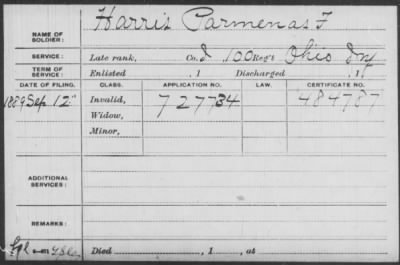 Harris Parmenas F
NAME OF SOLDIER:
SERVICE: Late rank, Co. I 100 Reg't Ohio Inf
TERM OF SERVICE: Enlisted , 1 Discharged , 1
DATE OF FILING. CLASS. APPLICATION NO. LAW. CERTIFICATE NO.
1889 Sep 12 Invalid, 727734 484787
Widow,
Minor,
ADDITIONAL SERVICES:
REMARKS:
Died , 1 , at